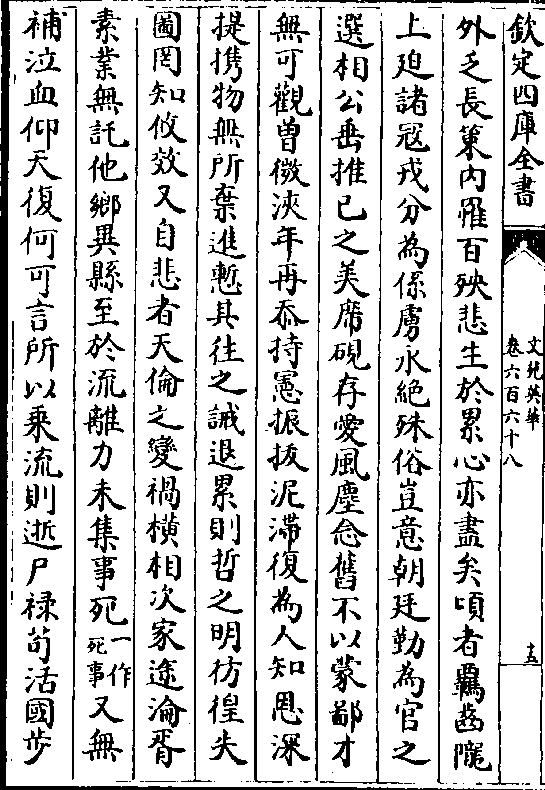 欽定四庫全書
文苑英華
卷六百六十八
十五
外乏長策内罹百殃悲生於累心亦盡矣頃者羈齒隴
上廹諸冦戎分為係虜水絶殊俗豈意朝廷勤為官之
選相公垂推已之美席硯存愛風塵念舊不以蒙鄙才
無可觀曽微浹年再忝持憲振拔泥滯復為人知恩深
提携物無所棄進慙其往之誡退累則哲之明彷徨失
圖罔知攸效又自悲者天倫之變禍橫相次家途淪胥
素業無託他鄉異縣至於流離力未集事死一作死事又無
補泣血仰天復何可言所以乗流則逝尸禄茍活國步